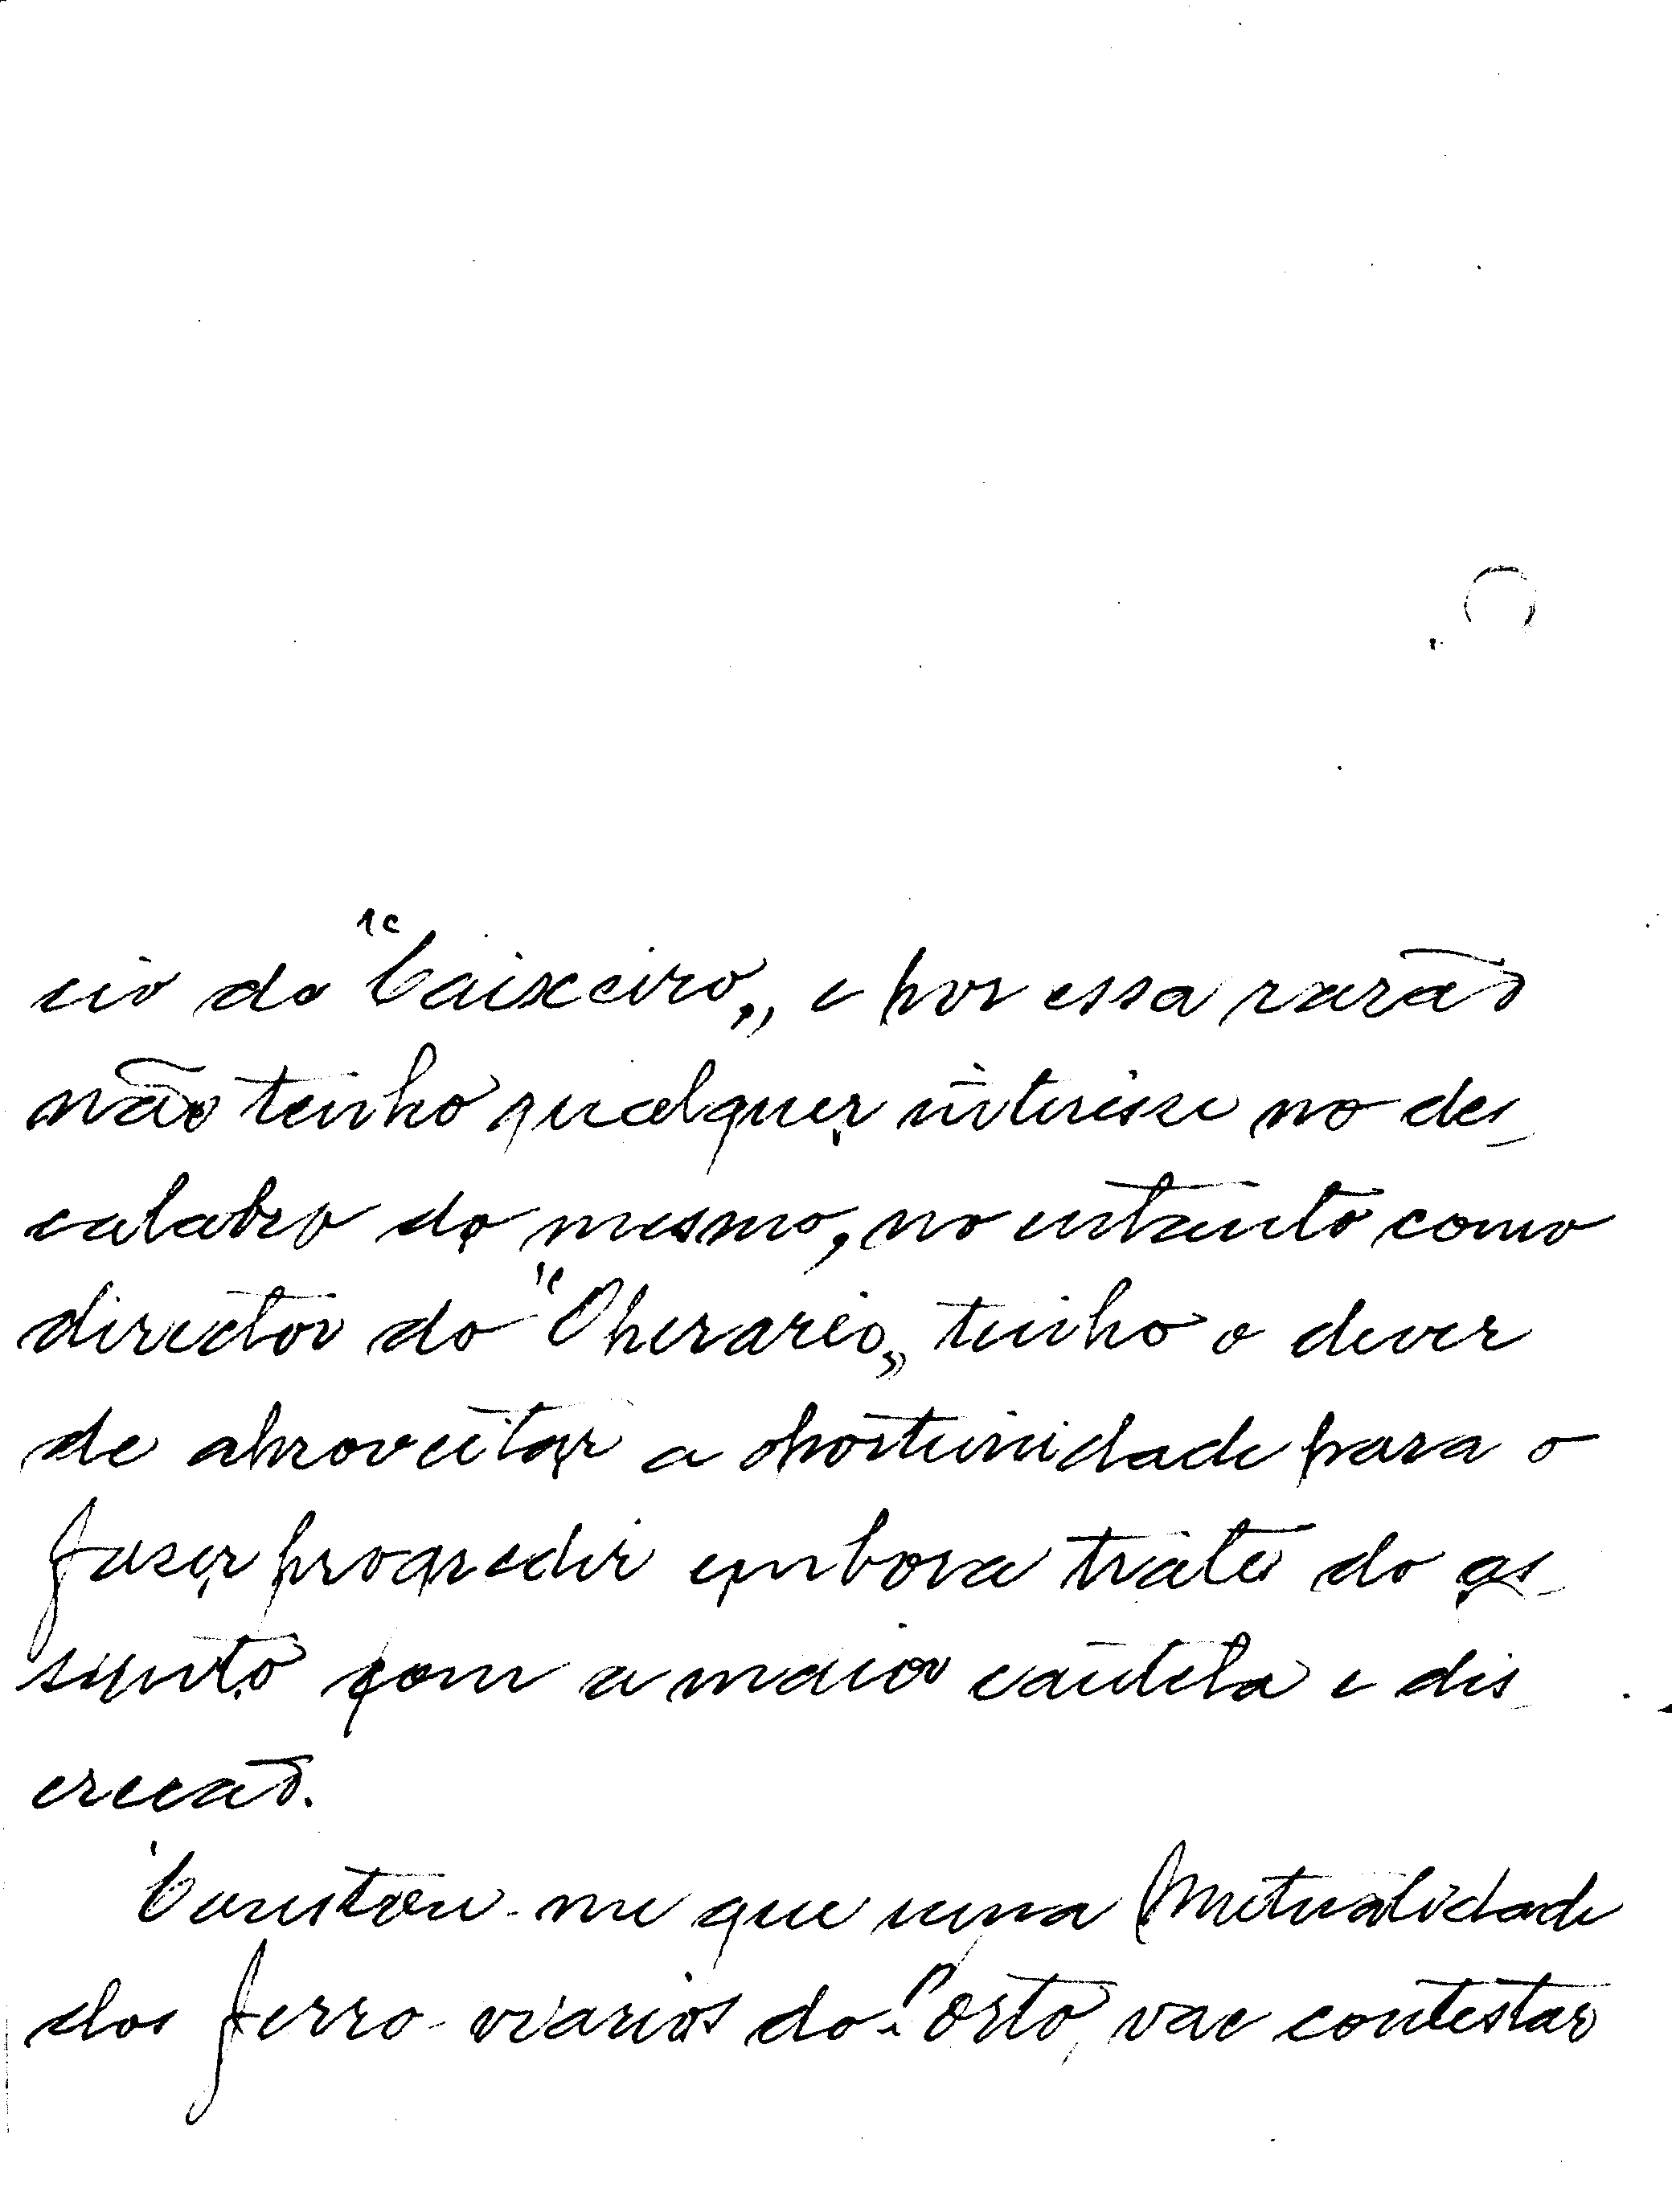 cio do "Caixeiro„ e por essa razão
não tenho qualquer interisse no des_
calabro do mesmo, no entanto como
director do "Operario„ tenho o dever
de aproveitar a oportunidade para o
faser progredir embora trate do as_
sunto com a maior cautela e dis_
creção.
Constou-me que uma Mutualidade
dos ferro-viarios do Porto, vae contestar